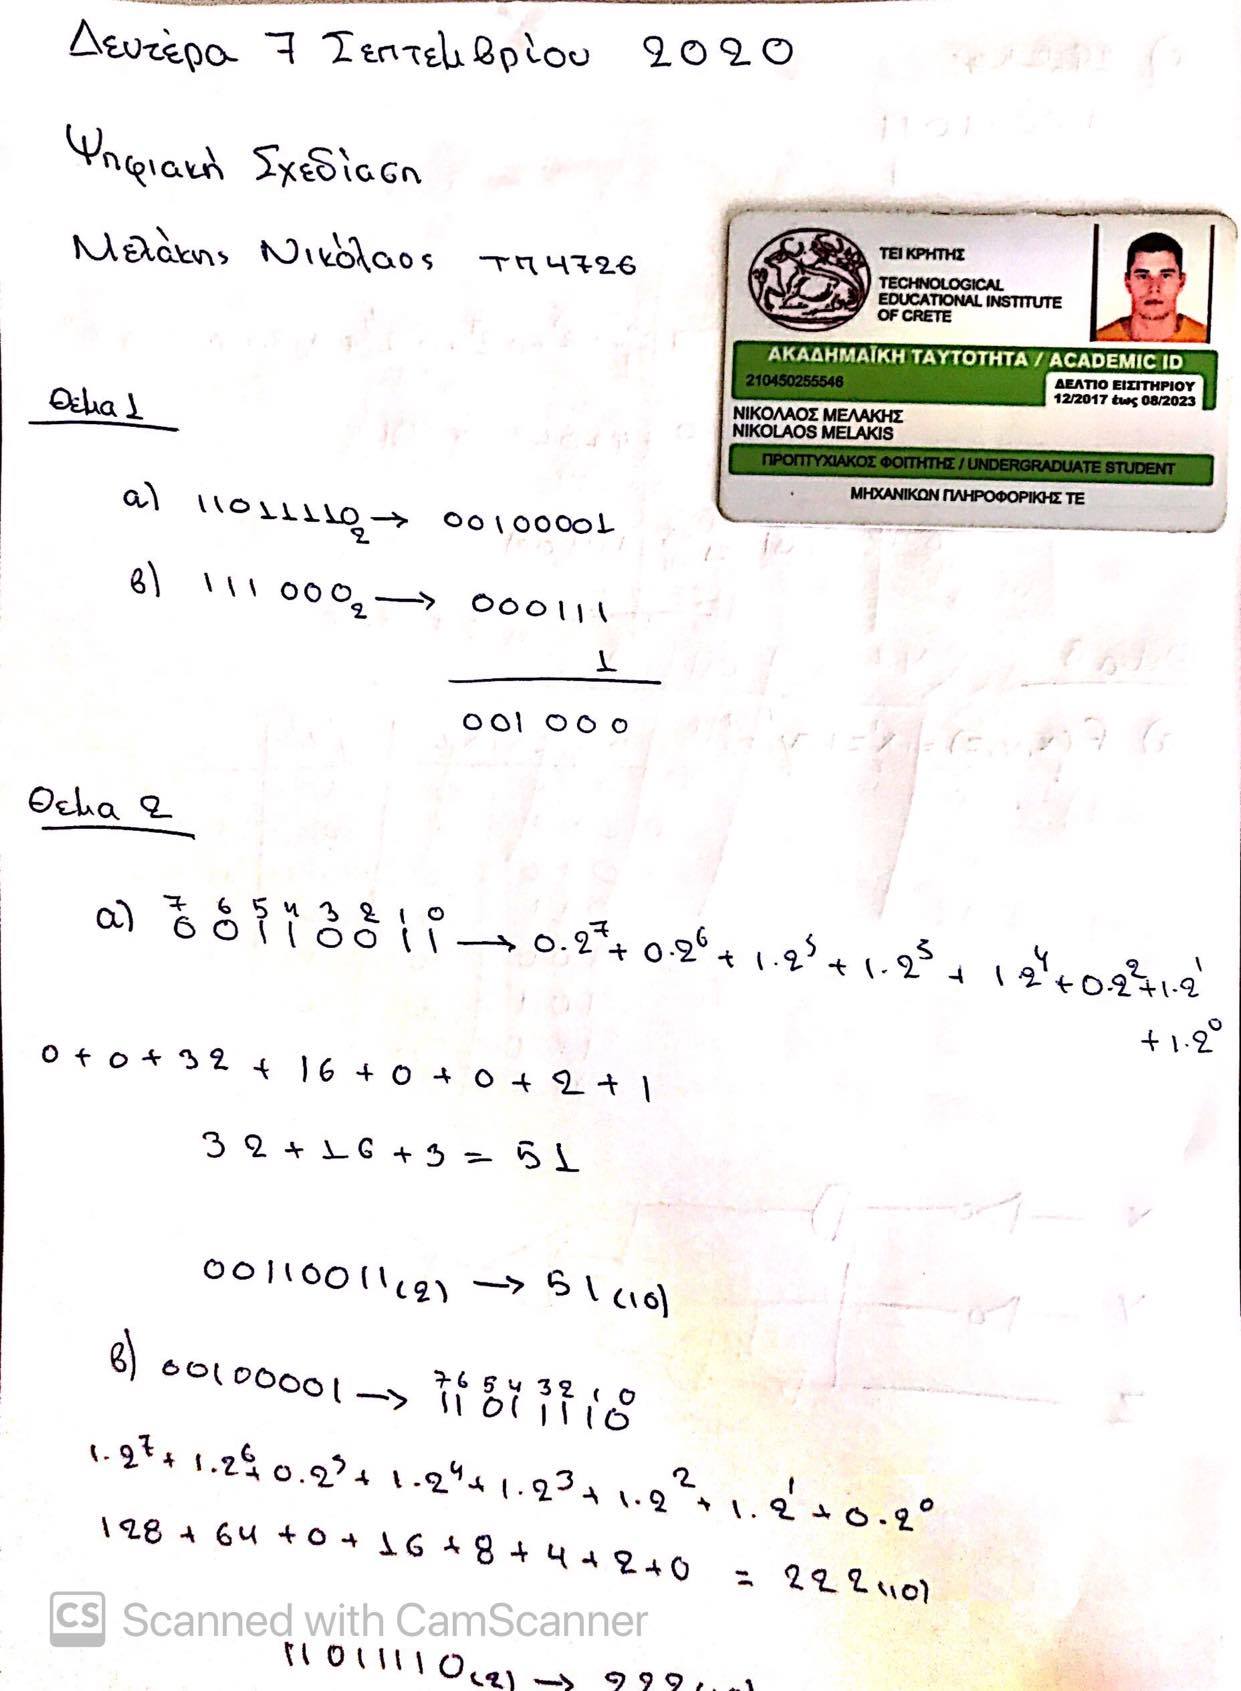 Δευτέρα 7 Σεπτεμβρίου 2020
Ψηφιακή Σχεδίαση
Μελάκης Νικόλαος ΤΠ4726
ΤΕΙ ΚΡΗΤΗΣ
TECHNOLOGICAL
EDUCATIONAL INSTITUTE
OF CRETE
ΑΚΑΔΗΜΑΪΚΗ ΤΑΥΤΟΤΗΤΑ / ACADEMIC ID
210450255546
ΔΕΛΤΙΟ ΕΙΣΙΤΗΡΙΟΥ
12/2017 έως 08/2023
ΝΙΚΟΛΑΟΣ ΜΕΛΑΚΗΣ
NIKOLAOS MELAKIS
ΠΡΟΠΤΥΧΙΑΚΟΣ ΦΟΙΤΗΤΗΣ / UNDERGRADUATE STUDENT
ΜΗΧΑΝΙΚΩΝ ΠΛΗΡΟΦΟΡΙΚΗΣ ΤΕ
Θεμα 1
α) 11011110₂ → 00100001
β) 111 000₂ → 000111
1
001 000
Θεμα 2
7 6 5 4 3 2 1 0
α) 0 0 1 1 0 0 1 1 → 0.2⁷ + 0.2⁶ + 1.2⁵ + 1.2⁵ + 1 2⁴ + 0.2² + 1.2¹
+ 1.2⁰
0 + 0 + 32 + 16 + 0 + 0 + 2 + 1
32 + 16 + 3 = 51
00110011(2) → 51(10)
7 6 5 4 3 2 1 0
β) 00100001 → 11 01 11 10
1.2⁷ + 1.2⁶ + 0.2⁵ + 1.2⁴ + 1.2³ + 1.2² + 1.2¹ + 0.2⁰
128 + 64 + 0 + 16 + 8 + 4 + 2 + 0 = 222(10)
CS Scanned with CamScanner
11011110(2) → 222(10)